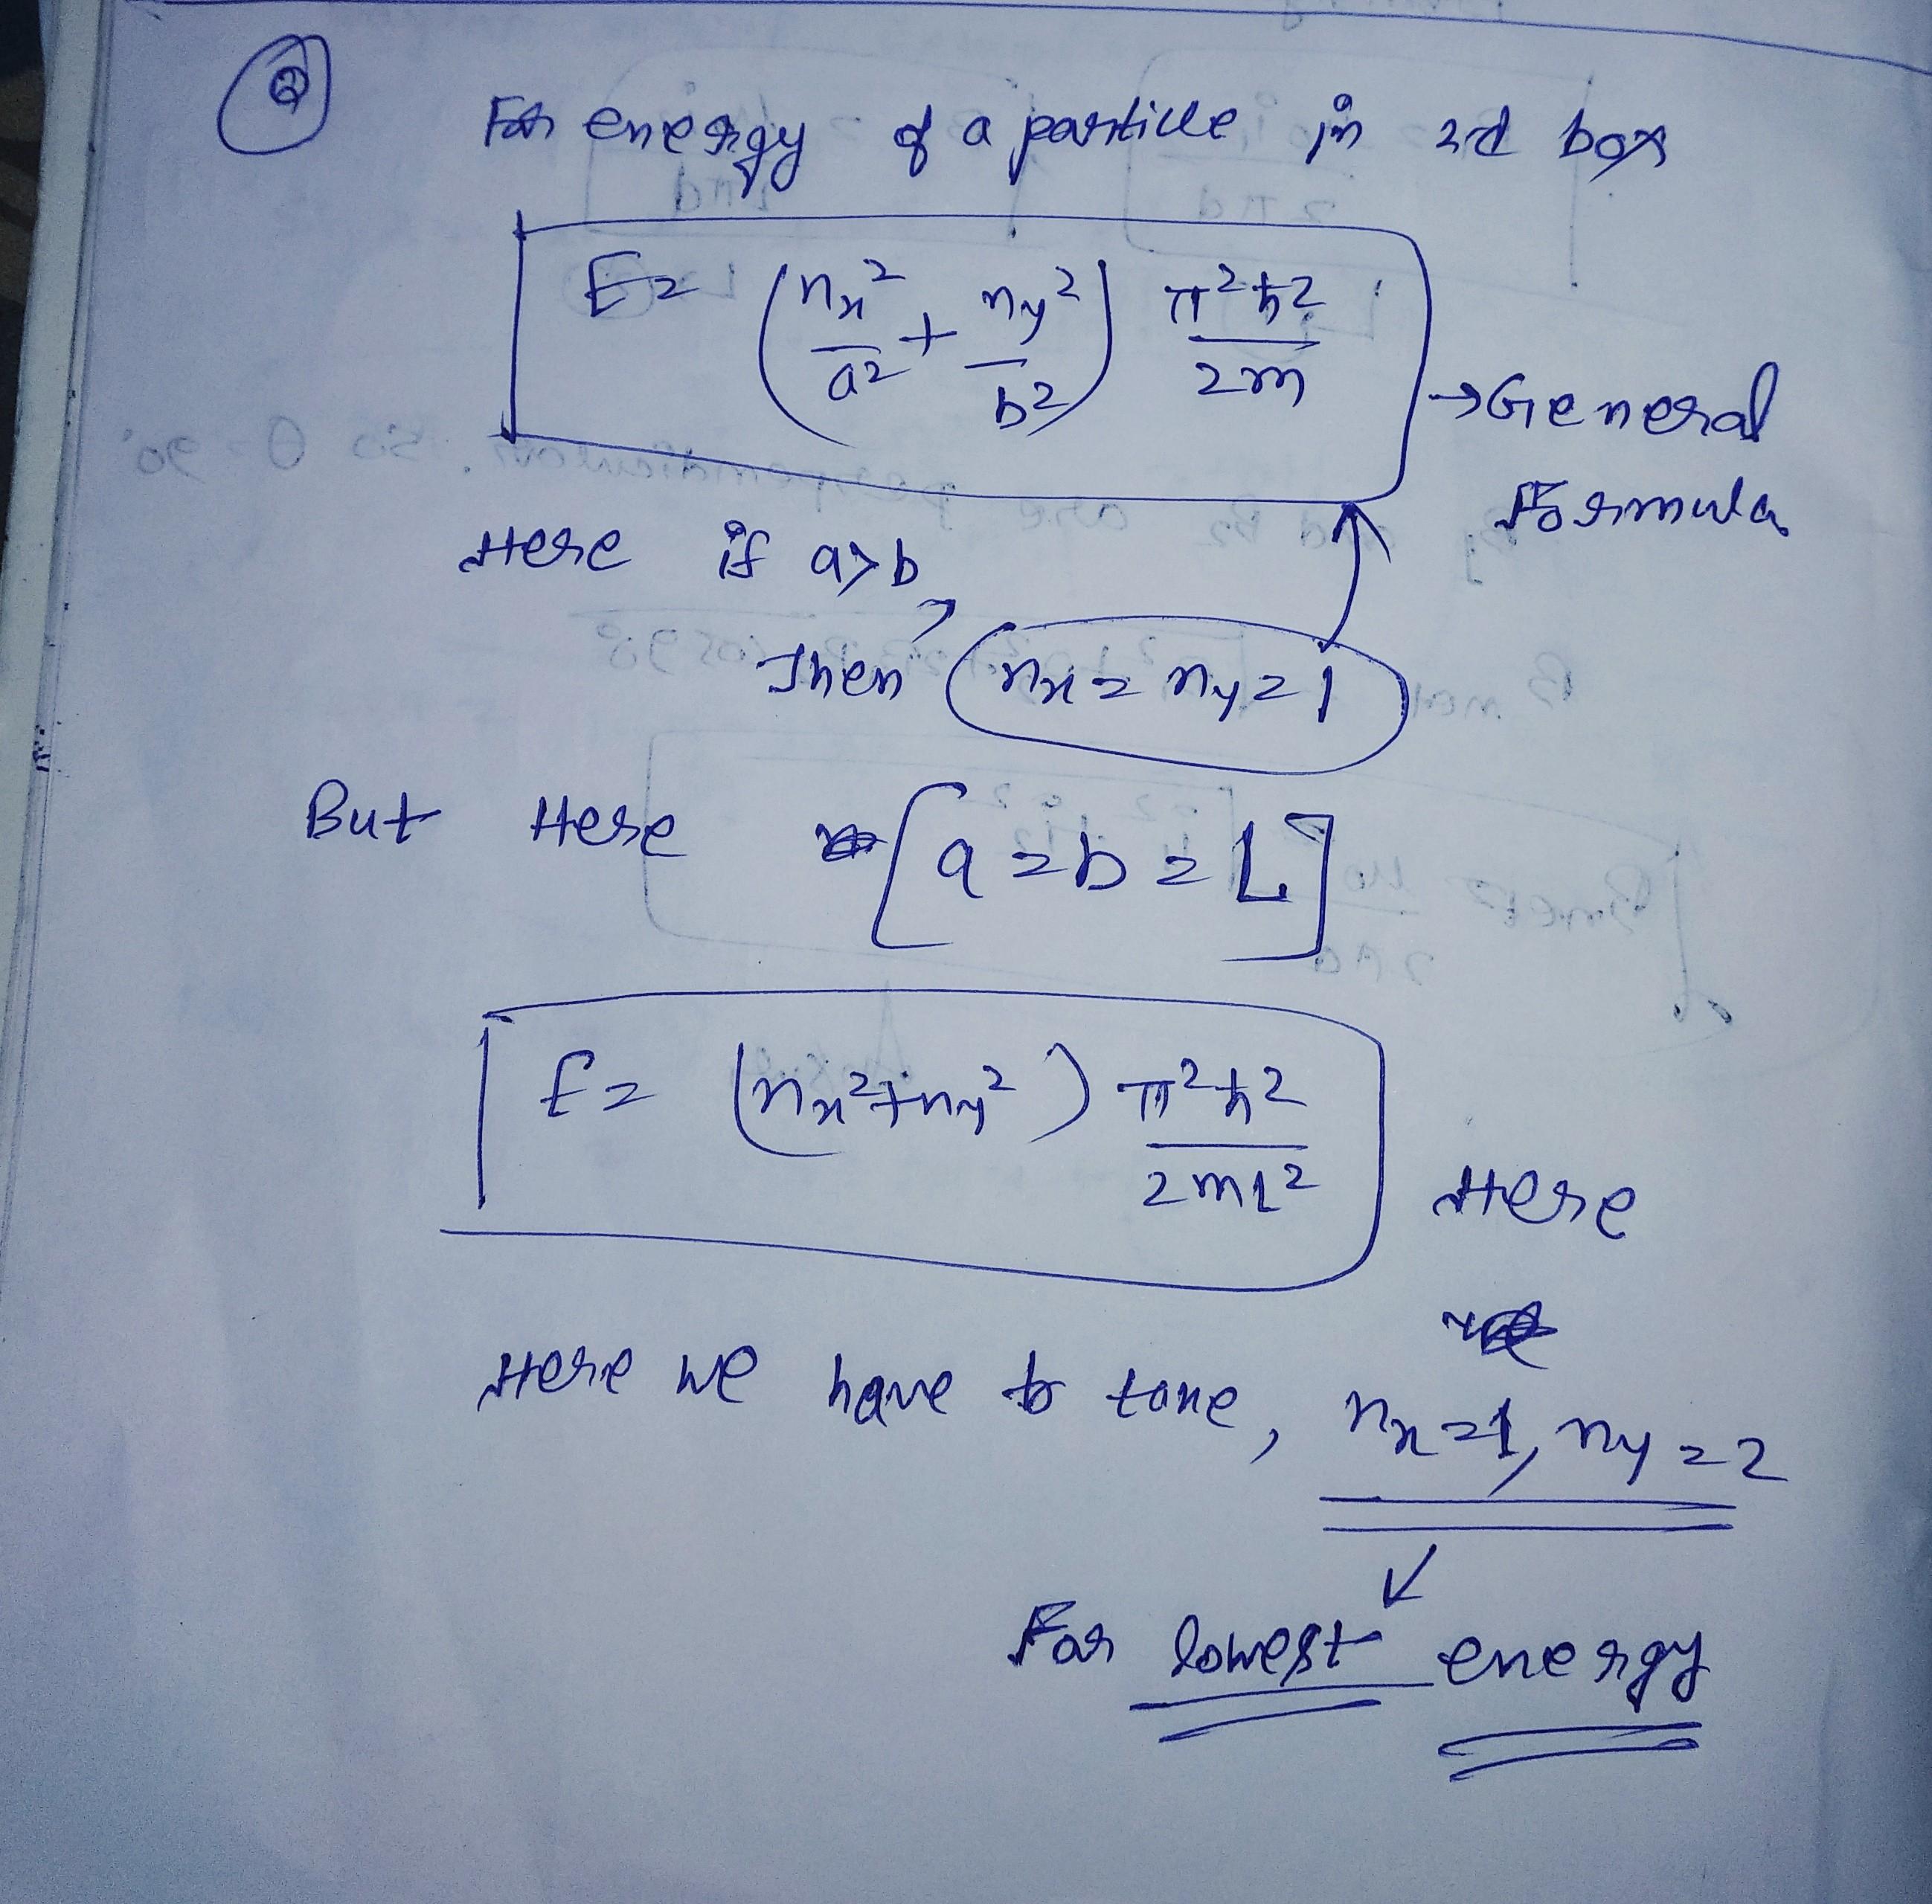 Q
For energy of a particle in 2d box
E = (nx²/a² + ny²/b²) π²ħ²/2m
→ General
Formula
Here if a>b,
Then nx = ny = 1
But Here [a = b = L]
E = (nx² + ny²) π²ħ²/2mL²
Here
Here we have to take, nx = 1, ny = 2
For lowest energy